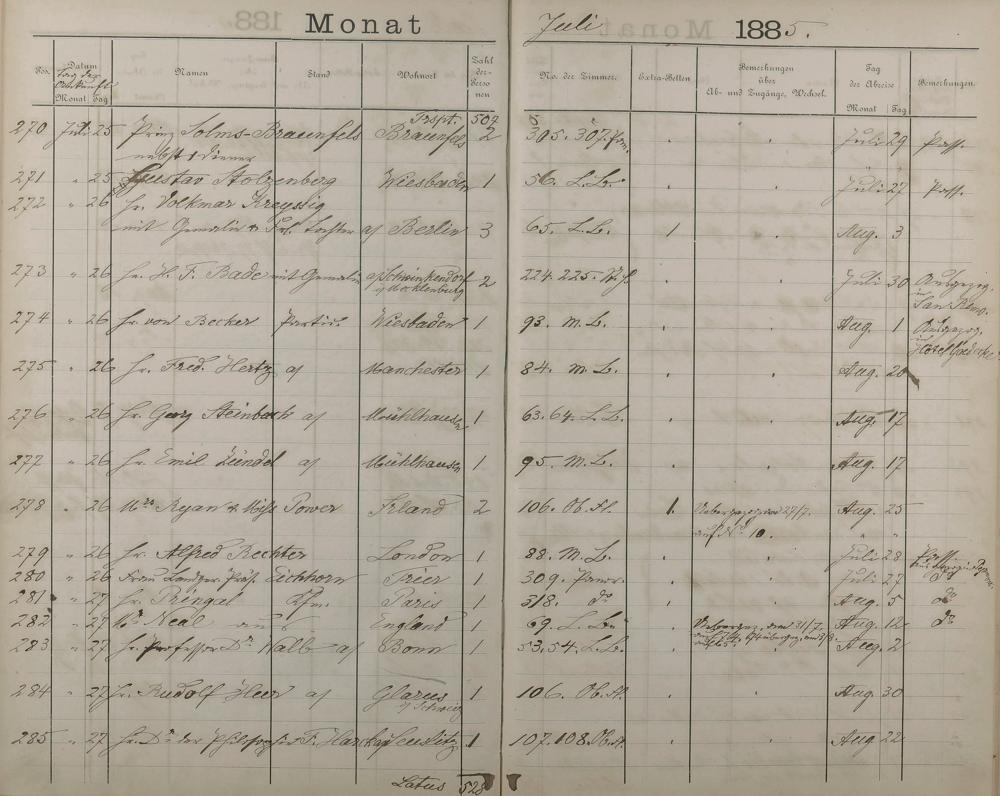 Monat Juli 1885.
Pos. Datum Namen Stand Wohnort Zahl der Personen No. der Zimmer. Extra-Betten Bemerkungen über Ab- und Zugänge, Wechsel. Tag der Abreise Bemerkungen.
Tag der Ankunft
Monat Tag Monat Tag
Trspt. 504
270 Juli 25 Prinz Solms-Braunfels Braunfels 2 305. 307. Juli 29 Pass.
nebst 1 Diener
271 " 25 Gustav Stolzenberg Wiesbaden 1 56. L.B. Juli 27 Pass.
272 " 26 Hr. Volkmar Kreyssig
mit Gemalin & Frl. Tochter a/ Berlin 3 65. L.B. 1 Aug. 3
273 " 26 Hr. H. F. Bade mit Gemalin a/ Schwinkendorf 2 224. 225. Juli 30 Ausgezog.
i/ Mecklenburg in San Remo.
274 " 26 Hr. von Becker Particl. Wiesbaden 1 93. M.B. Aug. 1 Ausgezog.
in Hotel
275 " 26 Hr. Fred. Hertz a/ Manchester 1 84. M.B. Aug. 20
276 " 26 Hr. Georg Steinbach a/ Mühlhausen 1 63. 64. L.B. Aug. 17
277 " 26 Hr. Emil Zündel a/ Mühlhausen 1 95. M.B. Aug. 17
278 " 26 Mrs Ryan & Miss Power Irland 2 106. Ob. St. 1. 27/7. Aug. 25
auf No 10. " "
279 " 26 Hr. Alfred Rechter London 1 88. M.B. Juli 28 Pass.
280 " 26 Frau Landger. Präs. Eichhorn Trier 1 309. Juli 27 do
281 " 27 Hr. Pringal Kfm. Paris 1 318. do Aug. 5 do
282 " 27 Neal England 1 69. L.B. 31/7. Aug. 12 do
283 " 27 Hr. Professor Dr Kalb a/ Bonn 1 53. 54. L.B. Aug. 2
284 " 27 Hr. Rudolf Heer a/ Glarus 1 106. Ob. St. Aug. 30
i/ Schweiz
285 " 27 Hr. Dr der Philosophie F. 1 107. 108. Ob. St. Aug. 22
Latus 528